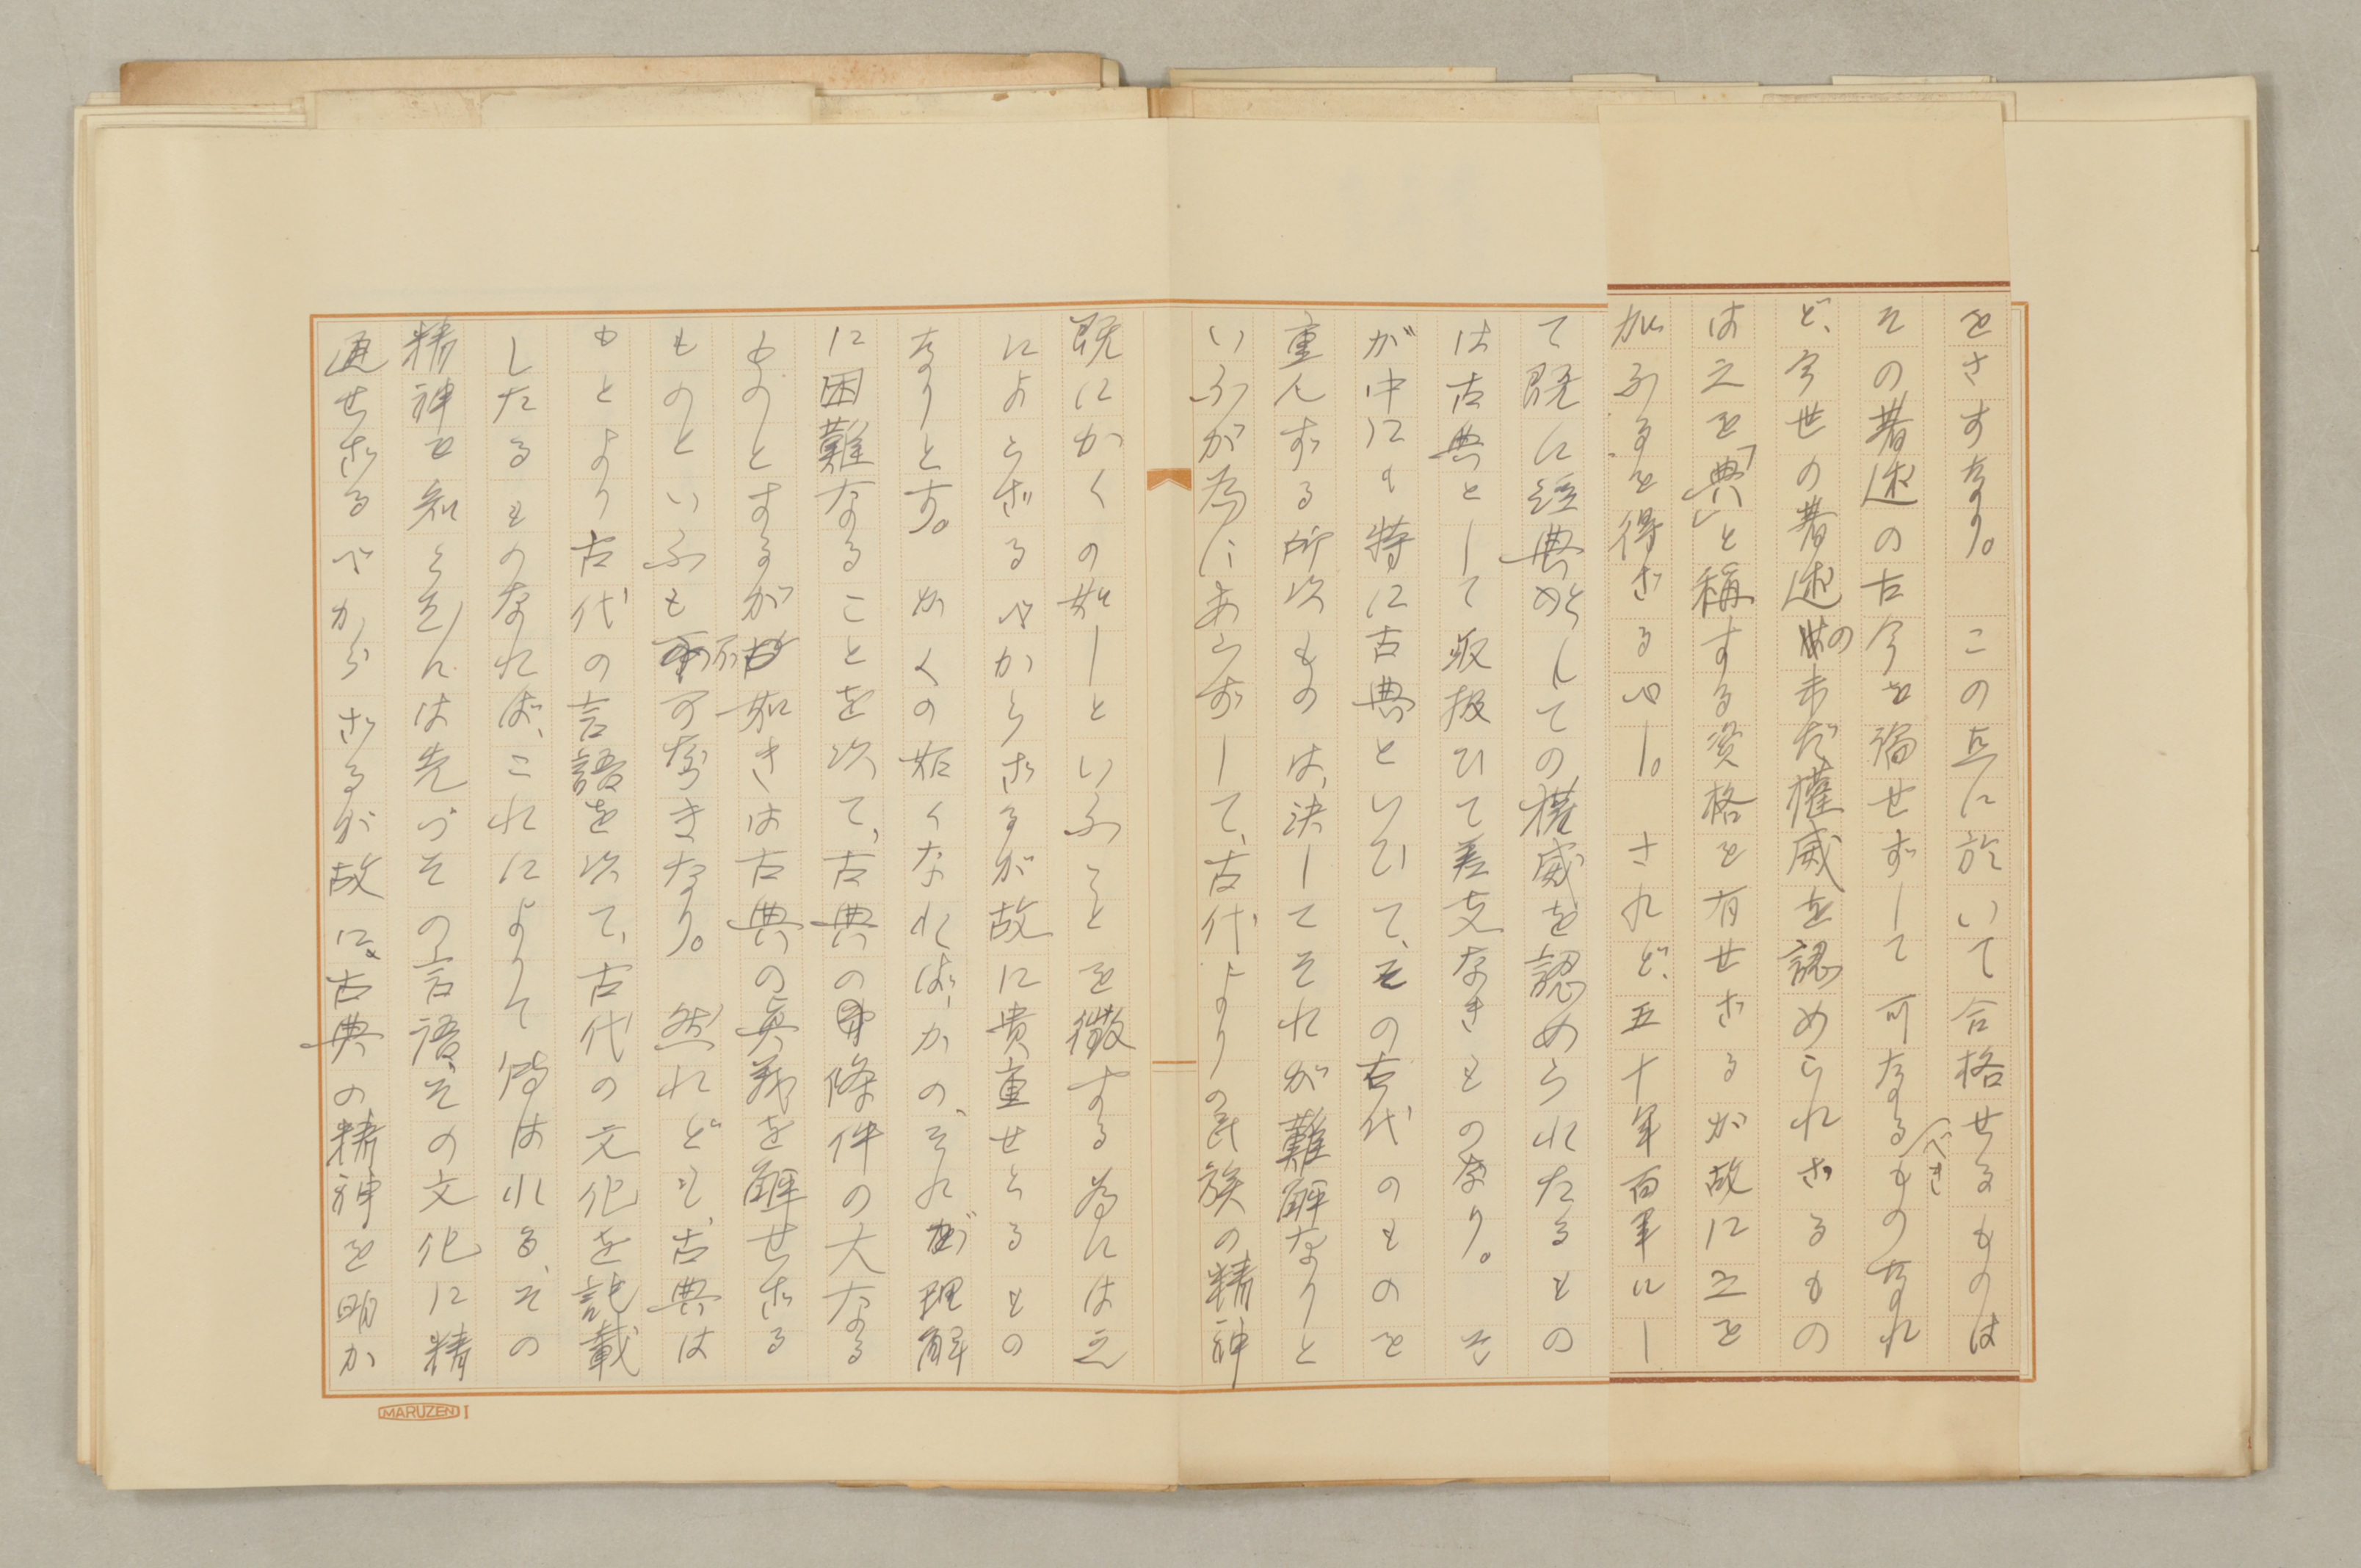 をさすなり。 この点に於いて合格せるものは
その著述の古今を論せずして可なるべきものなれ
ど、今世の著述の未だ權威を認められざるもの
は之を「典」と稱する資格を有せざるが故に之を
加ふるを得ざるべし。 されど、五十年百年にし
て既に經典としての權威を認められたるもの
は古典として取扱ひて差支なきものなり。 そ
が中にも特に古典といひて、その古代のものを
重んずる所以ものは、決してそれが難解なりと
いふが為にあらずして、古代よりの民族の精神
既にかくの如しといふことを徴する為には之
によらざるべからざるが故に貴重せらるもの
なりとす。 かくの如くなれば、かの、それが理解
に困難なることを以て、古典の條件の大なる
ものとするが如きは古典の眞義を解せざる
ものといふも不可なきなり。 然れども、古典は
もとより古代の言語を以て、古代の文化を記載
したるものなれば、これによりて傳はれる、その
精神を知らんは先づその言語、その文化に精
通せざるべからざるが故に、古典の精神を明か
MARUZEN I